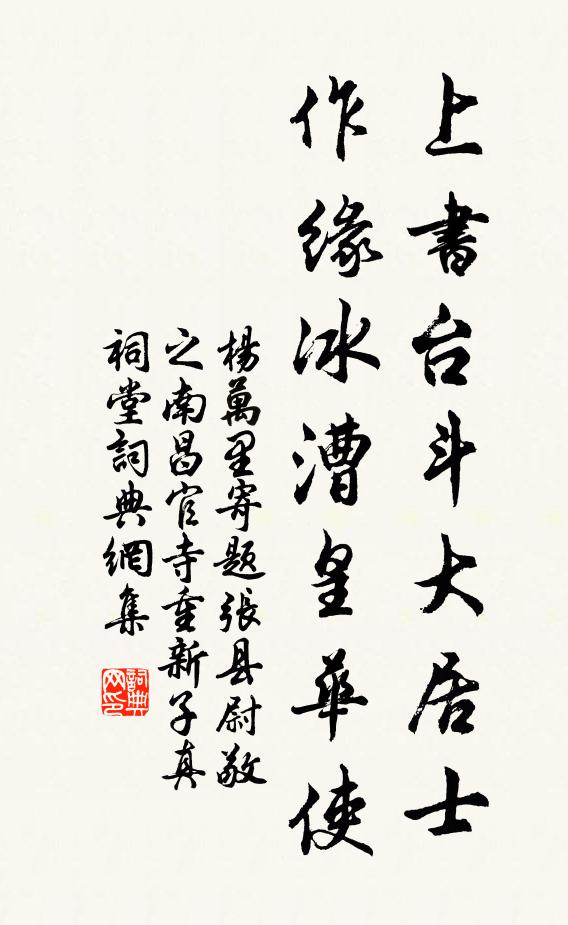 上書台斗大居士
作緣冰漕皇華使
楊萬里寄题張县尉敬
之南昌官寺重新子真
祠堂詞典網集
詞典网印